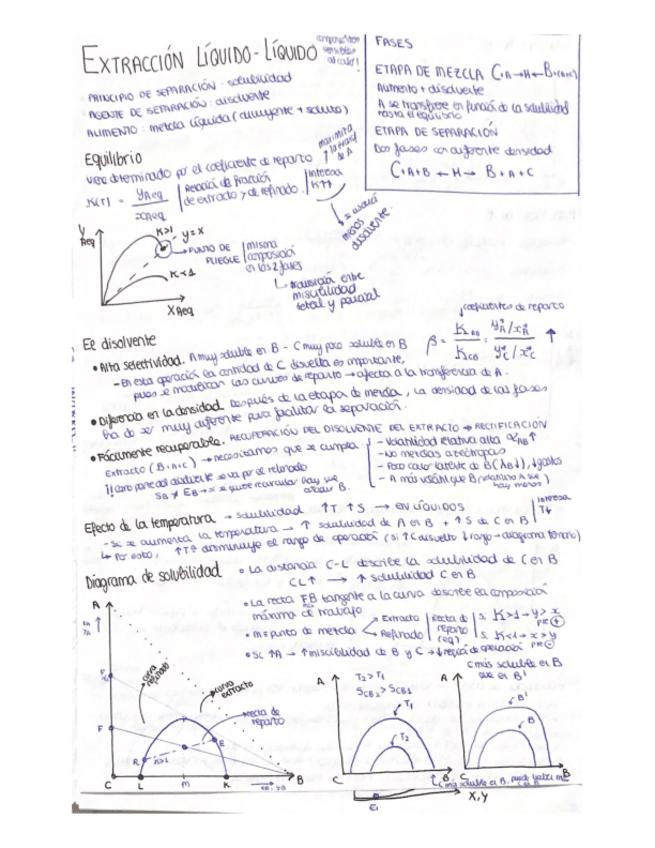 EXTRACCIÓN LÍQUIDO-LÍQUIDO
sensibles
al calor!
PRINCIPIO DE SEPARACIÓN: solubilidad
AGENTE DE SEPARACIÓN: disolvente
ALIMENTO: mezcla líquida (diluyente + soluto)
FASES
ETAPA DE MEZCLA C+A→M←B
Alimento + disolvente
A se transfiere en función de la solubilidad
hasta el equilibrio
ETAPA DE SEPARACIÓN
Dos fases con diferente densidad
C+A+B ← M → B+A+C
Equilibrio
viene determinado por el coeficiente de reparto
K(T) = yAeq / xAeq
Relación de fracción
de extracto y de refinado.
Interesa
K↑↑
maximiza
de A
menos
disolvente.
Y Aeq
K>1
y=x
PUNTO DE
PLIEGUE
misma
composición
en las 2 fases
transición entre
miscibilidad
total y parcial
K<1
X Aeq
coeficientes de reparto
El disolvente
• Alta selectividad. A muy soluble en B - C muy poco soluble en B
β = KAB / KCB = ↑
- En esta operación la cantidad de C disuelta es importante,
pues se modifican las curvas de reparto → afecta a la transferencia de A.
• Diferencia en la densidad. Después de la etapa de mezcla, la densidad de las fases
ha de ser muy diferente para facilitar la separación.
• Fácilmente recuperable. RECUPERACIÓN DEL DISOLVENTE DEL EXTRACTO → RECTIFICACIÓN
Extracto (B+A+C) → necesitamos que se cumpla
- Volatilidad relativa alta αAB↑
- No mezclas azeótropas
- Poco calor latente de B (λB↓), ↓gastos
- A más volátil que B
hay menos)
parte del disolvente se va por el refinado
SB ≠ EB → si se quiere recircular hay que
añadir B.
Efecto de la temperatura → solubilidad ↑T ↑S → EN LÍQUIDOS
Interesa
T↓
- Si se aumenta la temperatura → ↑ solubilidad de A en B + ↑ S de C en B
↳ Por esto, ↑Tª disminuye el rango de operación (si ↑C disuelto ↓rango → diagrama ternario)
Diagrama de solubilidad
• La distancia C-L describe la solubilidad de C en B
CL↑ → ↑ solubilidad C en B
• La recta FB tangente a la curva describe la composición
máxima de trabajo
• M = punto de mezcla
Extracto
Refinado
Recta de
reparto
(eq)
si K>1 → y>x
pte ⊕
si K<1 → x>y
pte ⊖
• Si ↑A → ↑miscibilidad de B y C → ↓región de operación
A
curva
refinado
curva
extracto
recta de
reparto
F
F
P
R
E
C
L
M
K
B
A
T2 > T1
SCB2 > SCB1
T1
T2
C
B
C más soluble en B
que en B'
A
B'
B
C
B
X, Y